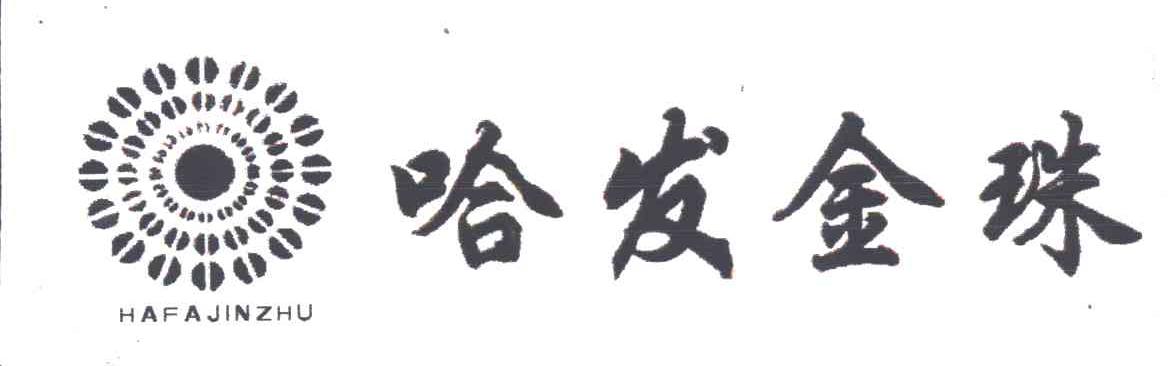 哈发金珠
HAFAJINZHU